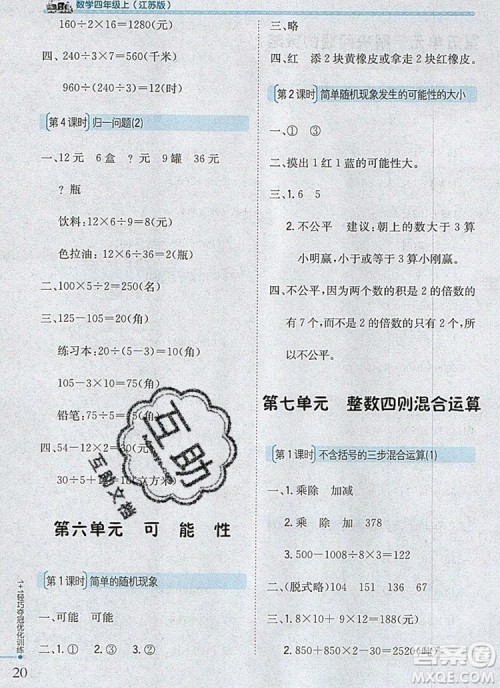 数学四年级上(江苏版)
160÷2×16=1280(元)
320÷2=160(元)
第4课时 归一问题(2)
一、12元 6盒 ?元 9罐 36元
?瓶
饮料:12×6÷9=8(元)
色拉油:12×6÷2=36(元)
二、100×5÷2=250(名)
三、105÷5=21(角)
练习本:20÷(5-3)=10(角)
105-3×10=75(角)
铅笔:75÷5=15(角)
四、54-24=30
30÷5×12
第六单元 可能性
第1课时 简单的随机现象
一、可能 可能
二、①③ ②③ ② ③
三、略
四、红 添2块黄橡皮或拿走2块红橡皮。
第2课时 简单随机现象发生的可能性的大小
一、① ③
二、摸出1红1蓝的可能性大。
三、1.6 5
2.不公平 建议:朝上的数大于3算
小明赢,小于或等于3算小刚赢。
四、不公平。因为两个数的积是2的倍数
的有7个,不是2的倍数的有2个,
所以不公平。
第七单元 整数四则混合运算
第1课时 不含括号的三步混合运算(1)
一、1.乘除 加减
2.乘 除 加 24 402 378
3.850 500-1050÷7
二、(脱式略) 104 151 136 67
三、1.8×90+9×10=810(元)
互助
互助文档
1+1轻巧夺冠优化训练
20